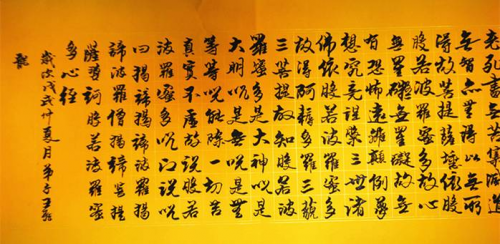 老死盡無苦集滅道
無智亦無得以無所
得故菩提薩埵依
般若波羅蜜多故心
無罣礙無罣礙故無
有恐怖遠離顛倒夢
想究竟涅槃三世諸
佛依般若波羅蜜多
故得阿耨多羅三藐
三菩提故知般若波
羅蜜多是大神咒是
大明咒是無上咒是無
等等咒能除一切苦
真實不虛故說般若
波羅蜜多咒即說咒
曰揭諦揭諦波羅揭
諦波羅僧揭諦菩提
薩婆訶般若波羅蜜
多心經
歲次戊戌仲夏月弟子王